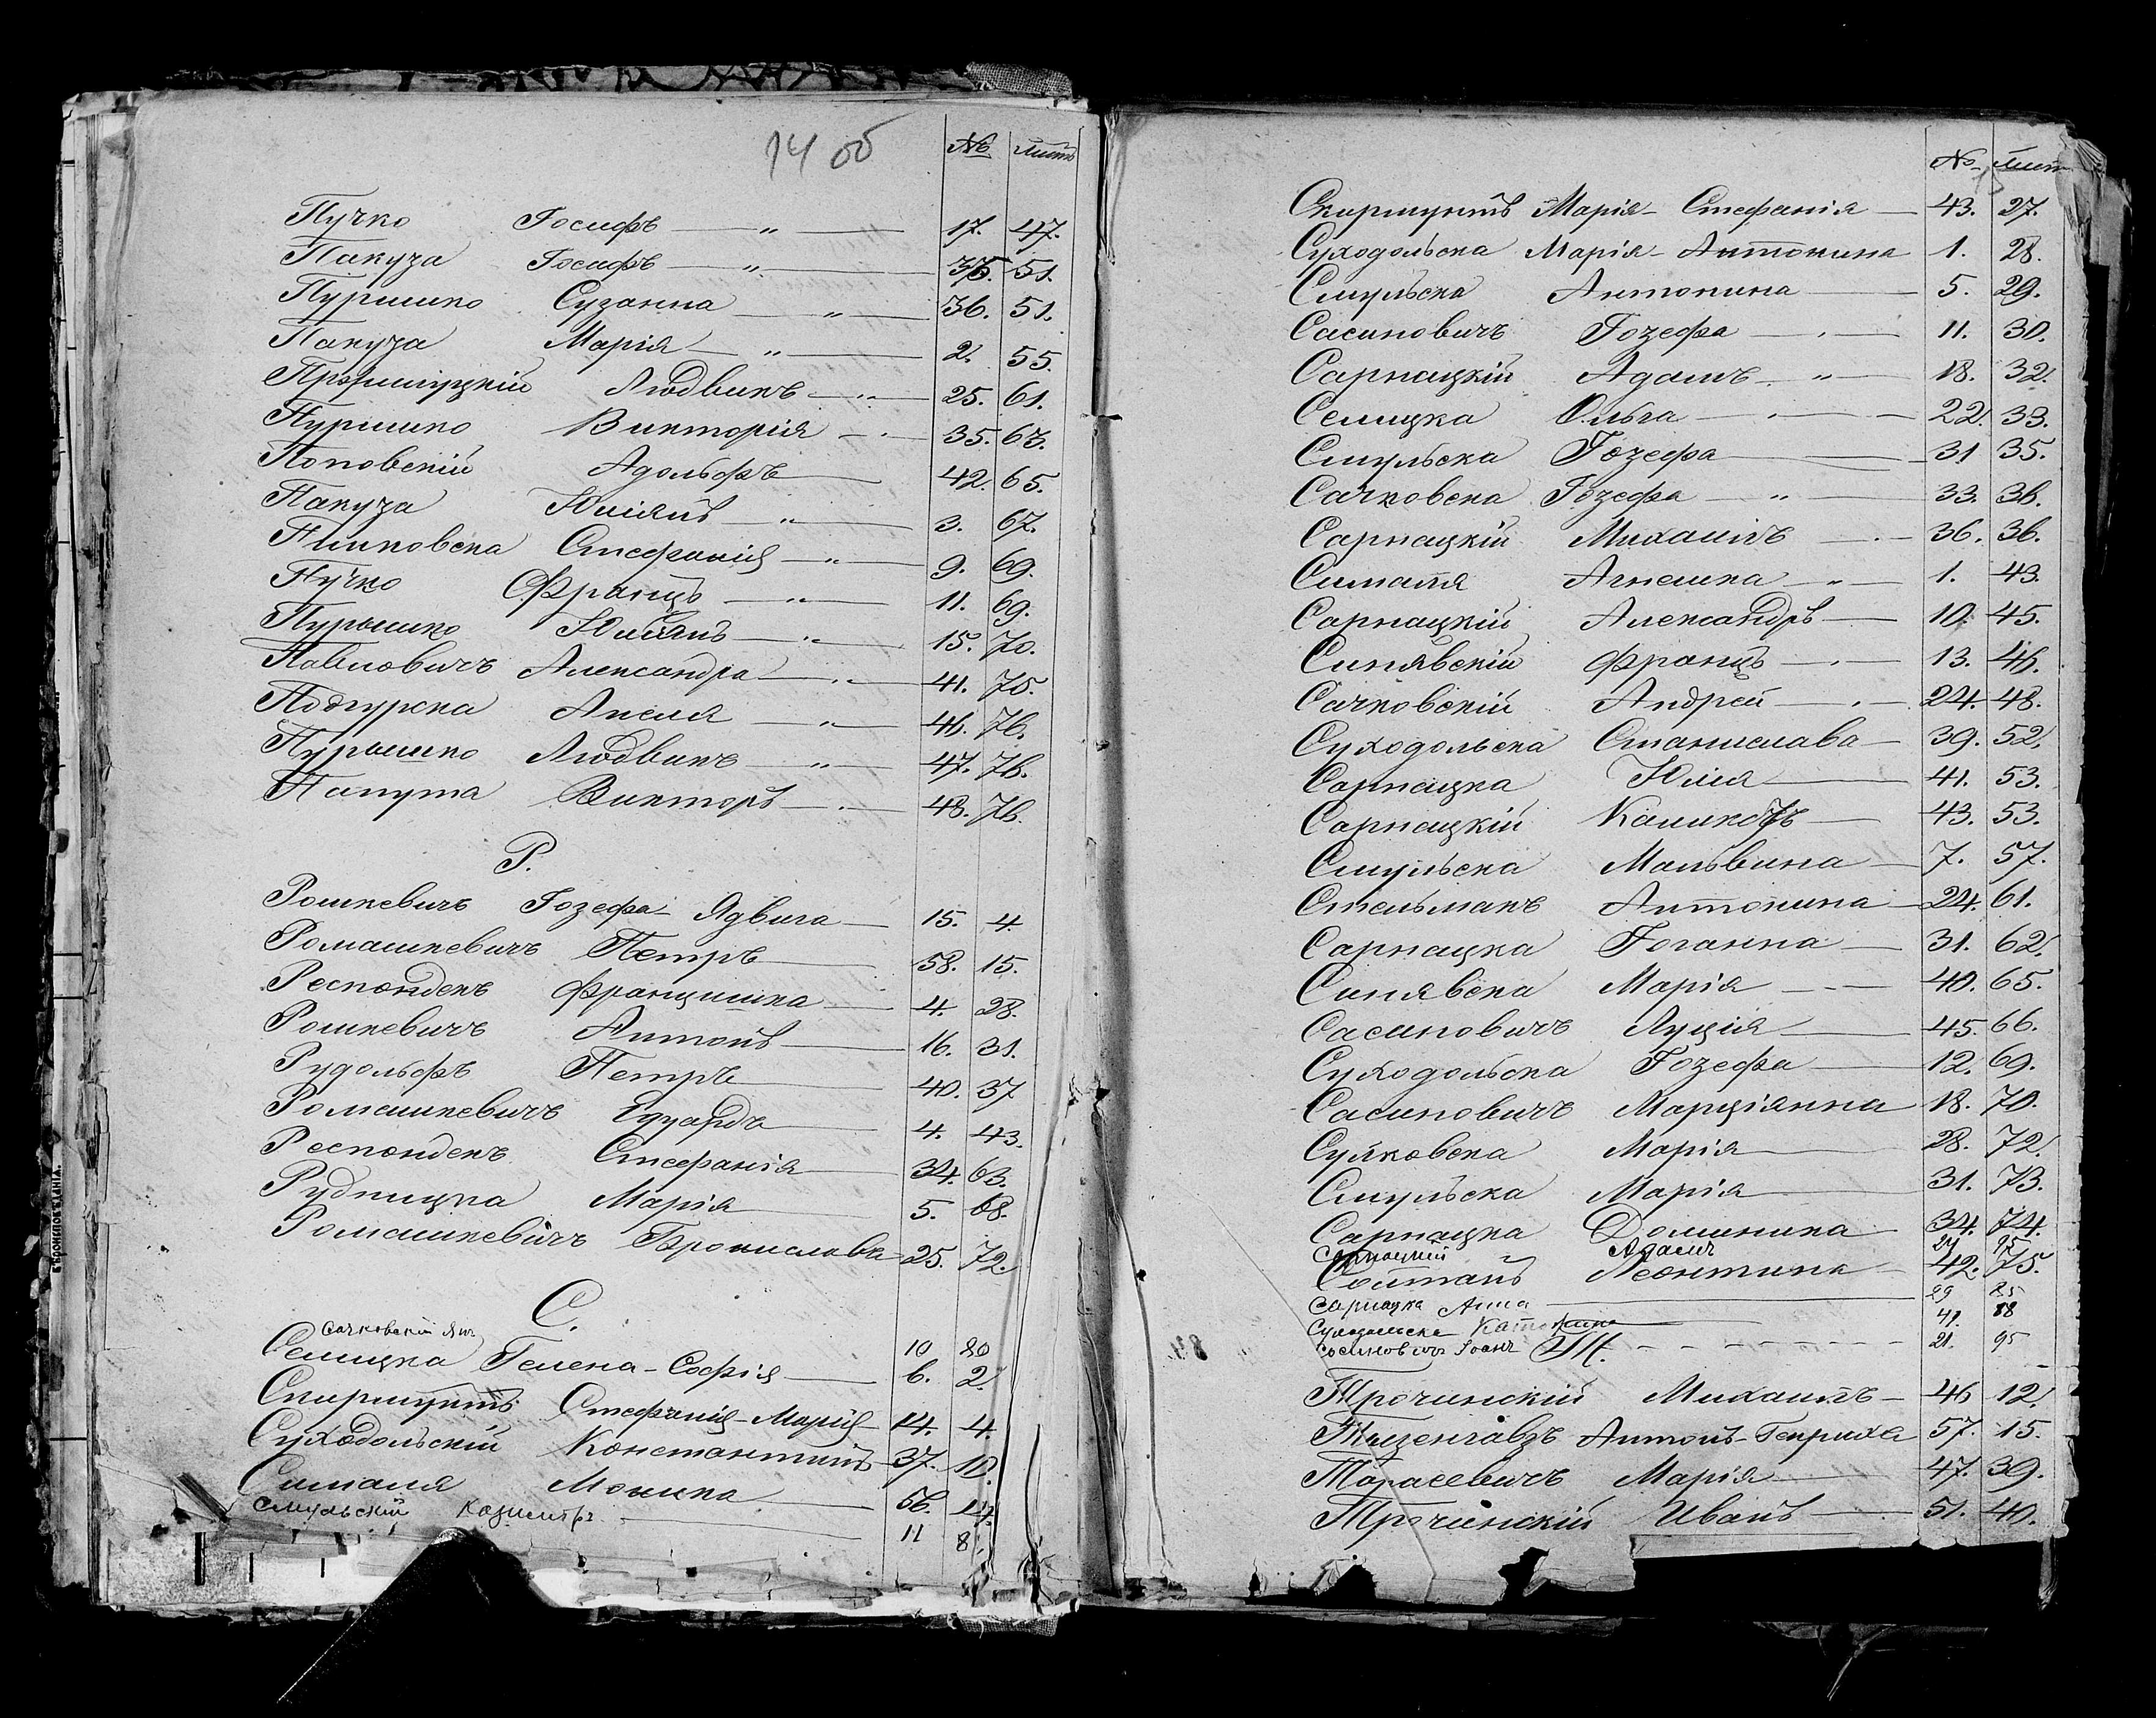 14 об
№ Листъ
Пучко Іосифъ — „ — 17. 47.
Пакуза Іосифъ — „ — 35. 51.
Пурышко Сузанна — „ — 36. 51.
Пакуза Марія — „ — 2. 55.
Людвикъ — „ — 25. 61.
Пурышко Викторія — „ — 35. 63.
Поповскій Адольфъ — 42. 65.
Пакуза Юліянъ — „ — 3. 67.
Стефанія — „ — 9. 69.
Пучко Францъ — „ — 11. 69.
Пурышко Юліянъ — „ — 15. 70.
Павловичъ Александра — „ — 41. 75.
Подгурска Анеля — „ — 46. 76.
Пурышко Людвикъ — „ — 47. 76.
Папута Викторъ — „ — 48. 76.
Р.
Рошкевичъ Іозефа-Ядвига — 15. 4.
Ромашкевичъ Петръ — 58. 15.
Респондекъ Францишка — 4. 28.
Рошкевичъ Антонъ — 16. 31.
Рудольфъ Петръ — 40. 37
Ромашкевичъ Едуардъ — 4. 43.
Респондекъ Стефанія — 34. 63.
Рудницка Марія — 5. 68.
Ромашкевичъ Брониславъ — 25. 72.
С.
Сачковскій Янъ 10 80
Селицка Гелена-Софія — 6. 2.
Скирмунтъ Стефанія-Марія — 14. 4.
Суходольскій Константинъ — 37. 10.
Сималя Моника — 56. 14.
Смульскій Казимиръ — 11 8
№ Лист
Скирмунтъ Марія-Стефанія — 43. 27.
Суходольска Марія-Антонина 1. 28.
Смульска Антонина — 5. 29.
Сасиновичъ Іозефа — 11. 30.
Сарнацкій Адамъ — „ — 18. 32.
Селицка Ольга — 22. 33.
Смульска Іозефа — 31 35.
Сачковска Іозефа — „ — 33. 36.
Сарнацкій Михаилъ — 36. 36.
Сималя Агнешка — „ — 1. 43.
Сарнацкій Александръ — 10. 45.
Синявскій Францъ — 13. 46.
Сачковскій Андрей — 24. 48.
Суходольска Станислава — 39. 52.
Сарнацка Юлія — 41. 53.
Сарнацкій — 43. 53.
Смульска Мальвина — 7. 57.
Стельмакъ Антонина — 24. 61.
Сарнацка Іоганна — 31. 62.
Синявска Марія — 40. 65.
Сасиновичъ Луція — 45. 66.
Суходольска Іозефа — 12. 69.
Сасиновичъ Марціянна 18. 70.
Сулковска Марія — 28. 72.
Смульска Марія — 31. 73.
Сарнацка Доминика — 34. 74.
Сарнацкій Адамъ 24 85
Солтанъ Леонтина — 42. 75.
Сарнацка Анна — 29 85
Суходольска Катажина — 41. 88
Сасиновичъ Іоанъ — 21. 95
Т.
Трочинскій Михаилъ — 46 12.
Тизенгавзъ Антонъ-Генрихъ 57. 15.
Тарасевичъ Марія — 47. 39.
Трочинскій Иванъ — 51. 40.